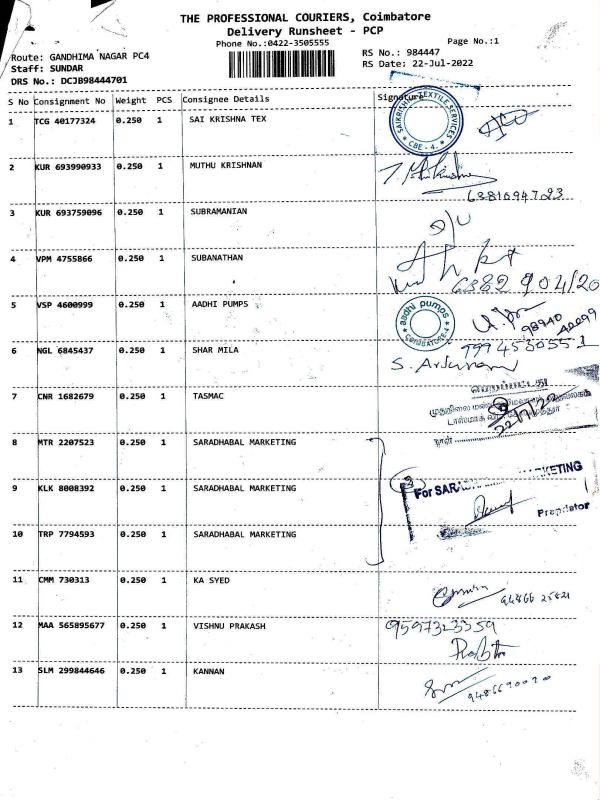 THE PROFESSIONAL COURIERS, Coimbatore
Delivery Runsheet - PCP
Phone No.:0422-3505555
Page No.:1
Route: GANDHIMA NAGAR PC4
RS No.: 984447
Staff: SUNDAR
RS Date: 22-Jul-2022
DRS No.: DCJB98444701
S No Consignment No Weight PCS Consignee Details Signature
1 TCG 40177324 0.250 1 SAI KRISHNA TEX
SAIKRISHNA TEXTILE SERVICES
* CBE - 4. *
2 KUR 693990933 0.250 1 MUTHU KRISHNAN
3 KUR 693759096 0.250 1 SUBRAMANIAN
4 VPM 4755866 0.250 1 SUBANATHAN
5 VSP 4600999 0.250 1 AADHI PUMPS
aadhi pumps
COIMBATORE-4
6 NGL 6845437 0.250 1 SHAR MILA
7994530551
7 CNR 1682679 0.250 1 TASMAC
22/7/22
நாள்
8 MTR 2207523 0.250 1 SARADHABAL MARKETING
9 KLK 8008392 0.250 1 SARADHABAL MARKETING
For SARA KETING
Proprietor
10 TRP 7794593 0.250 1 SARADHABAL MARKETING
11 CMM 730313 0.250 1 KA SYED
94866 25821
12 MAA 565895677 0.250 1 VISHNU PRAKASH
9597323359
13 SLM 299844646 0.250 1 KANNAN